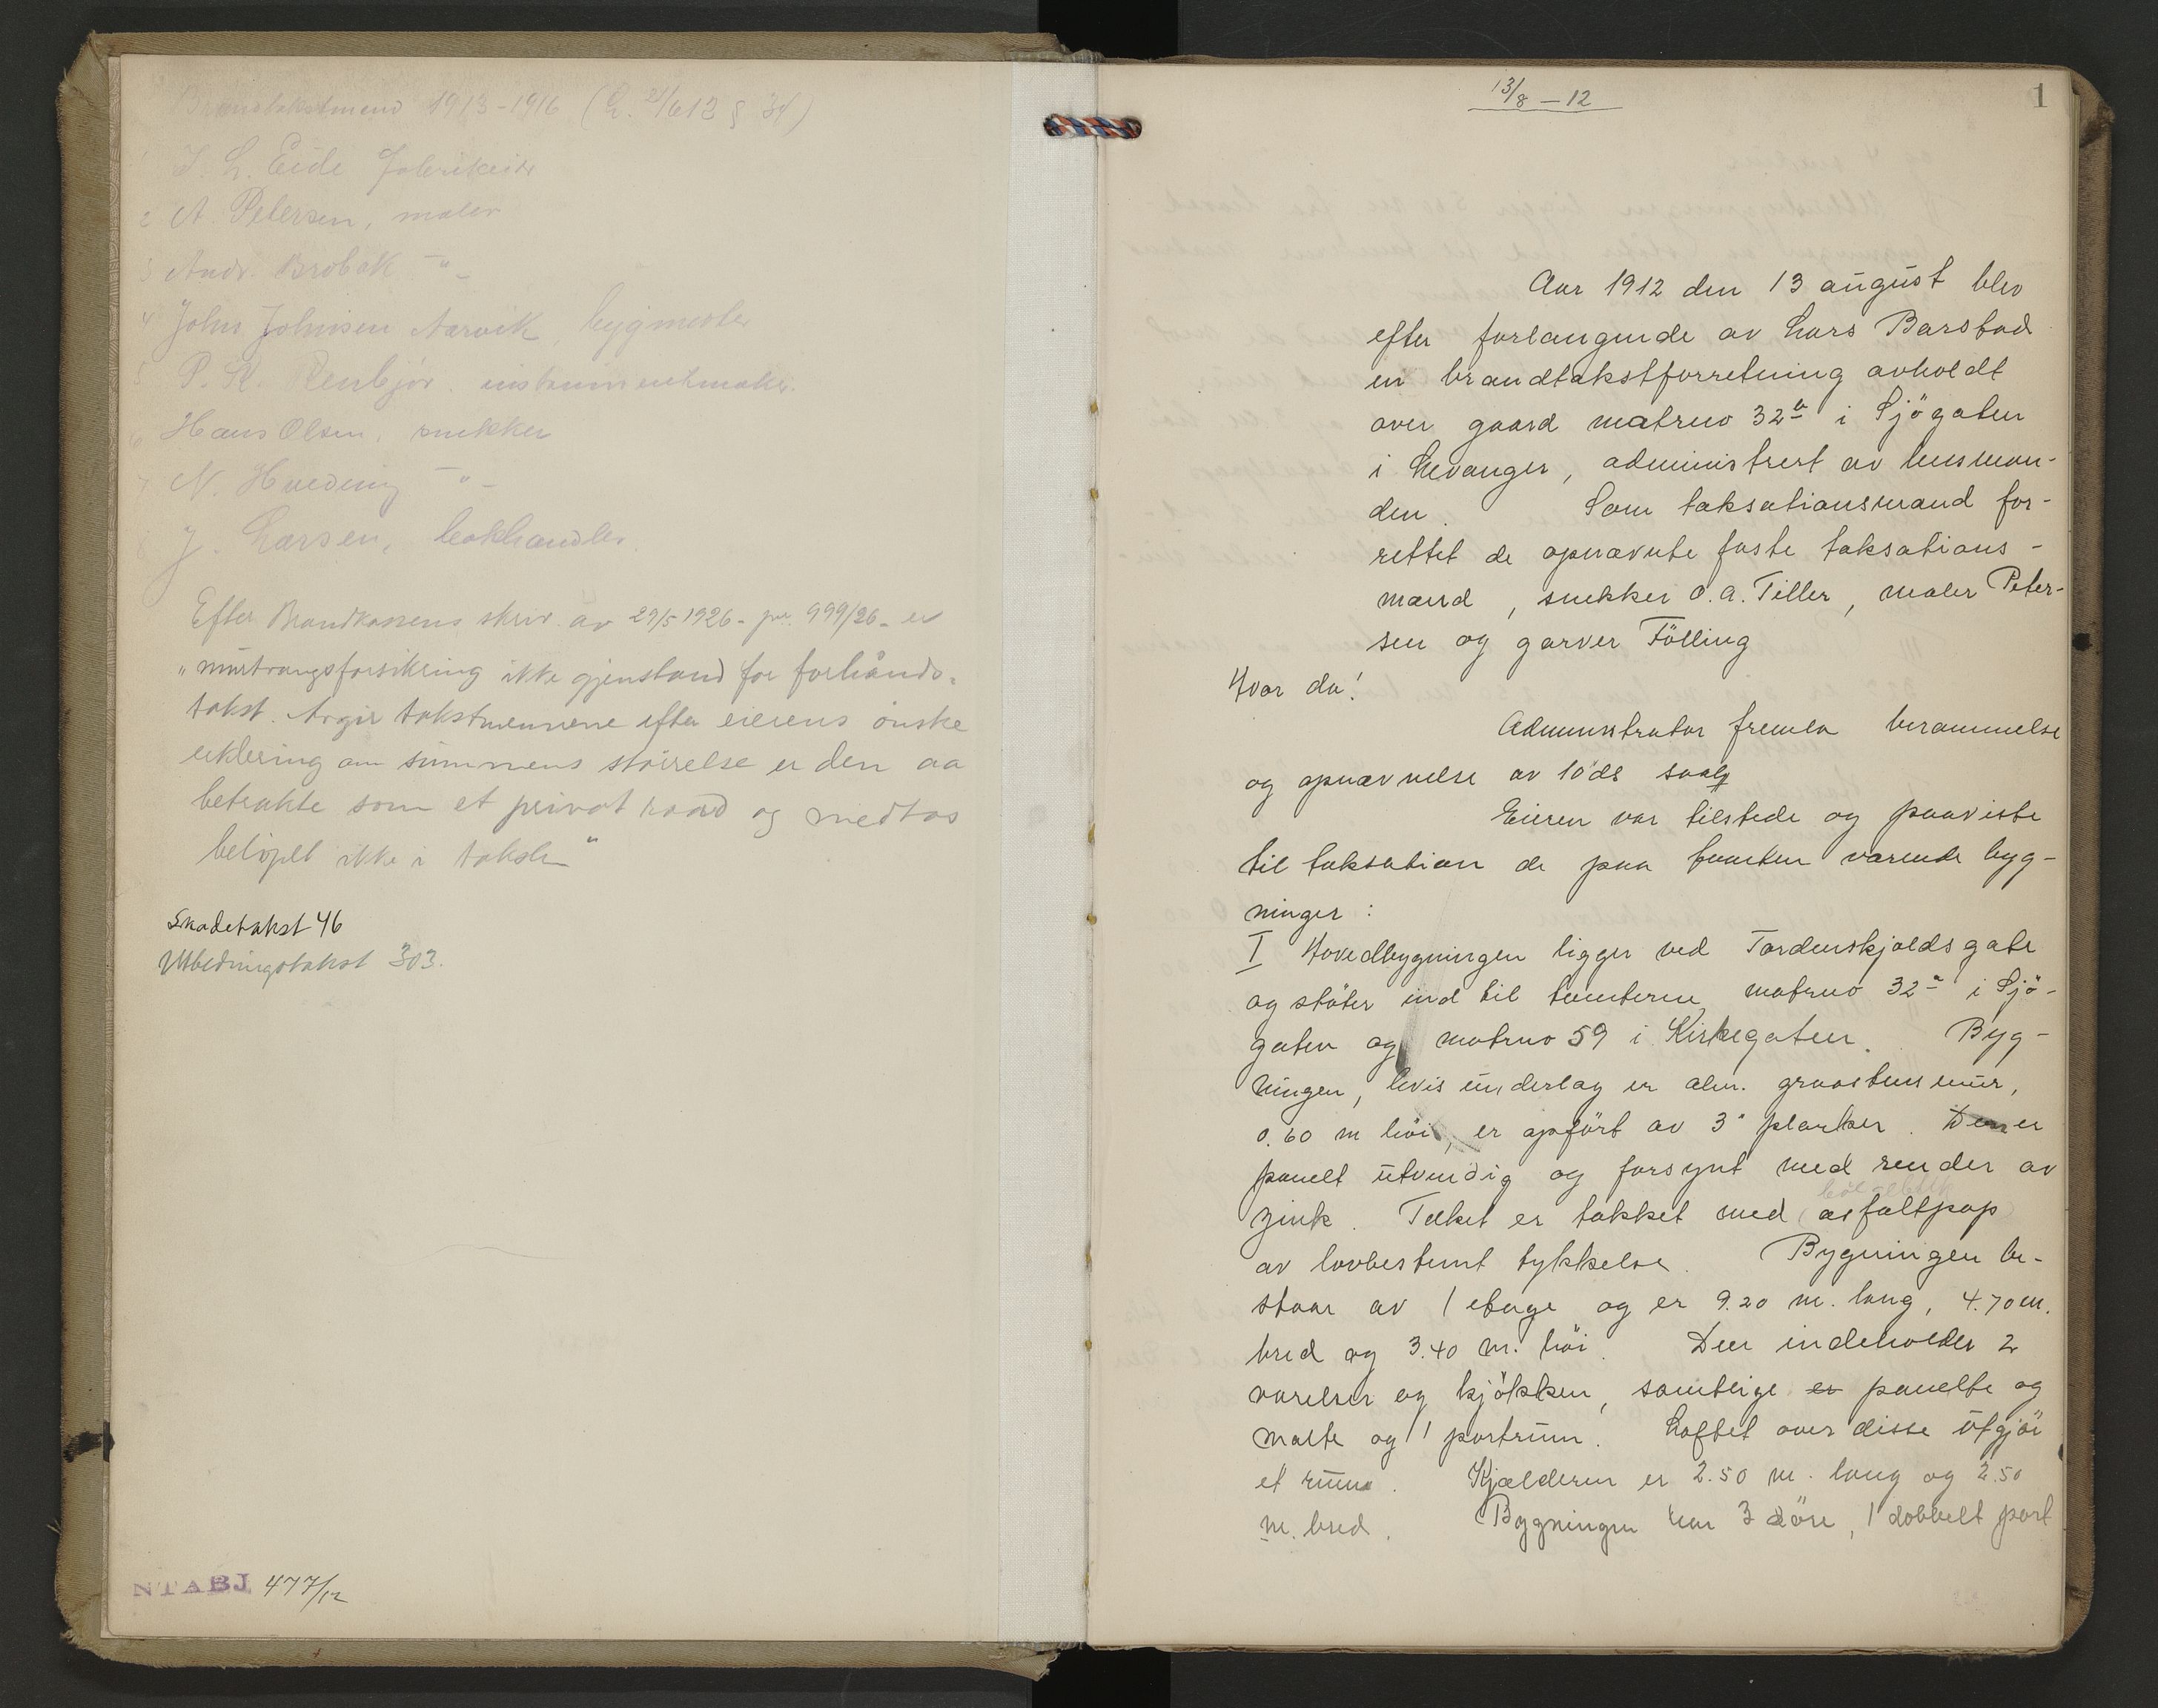 Brandtakstmænd 1913-1916 (L. 21/6 12 § 34)
1 J. L. Eide Fabrikeier
2 A. Petersen, maler
3 Andr. Brobak -"-
4 John Johnsen Aarvik, bygmester
5 P. K. Renbjør. instrumentmaker.
6 Hans Olsen, snekker
7 N. Hveding -"-
8 J. Larsen, bokhandler.
Efter Brandkassens skriv. av 29/5 1926 - jnr. 999/26 - er
"mertrangsforsikring ikke gjenstand for forhånds-
takst. Avgir takstmennene efter eierens ønske
erklering om summens størrelse er den aa
betrakte som et privat raad og medtas
beløpet ikke i taksten"
Skadetakst 46
Utbedringstakst 303.
NTABJ 477/12
13/8 - 12
1
Aar 1912 den 13 august blev
efter forlangende av Lars Barstad
en brandtakstforretning avholdt
over gaard matrno 32b i Sjögaten
i Levanger, administrert av lensman-
den. Som taksationsmænd for-
rettet de opnævnte faste taksations-
mænd, snekker O. A. Tiller, maler Peter-
sen og garver Fölling
Hvor da!
Administrator fremla berammelse
og opnævnelse av 10 ds saalg
Eieren var tilstede og paaviste
til taksation de paa tomten værende byg-
ninger:
I Hovedbygningen ligger ved Tordenskjoldsgate
og stöter ind til tomterne matrno 32a i Sjö-
gaten og matrno 59 i Kirkegaten. Byg-
ningen, hvis underlag er alm. graastensmur,
0.60 m höi, er opfört av 3" planker. Den er
panelt utvendig og forsynt med render av
zink. Taket er tækket med (asfaltpap)
bölgeblik
av lovbestemt tykkelse. Bygningen be-
staar av 1 etage og er 9.20 m. lang, 4.70 m.
bred og 3.40 m. höi. Den indeholder 2
værelser og kjökken, samtlige er panelte og
malte og 1 portrum. Loftet over disse utgjör
et rum. Kjælderen er 2.50 m. lang og 2.50
m. bred. Bygningen har 3 döre, 1 dobbelt port